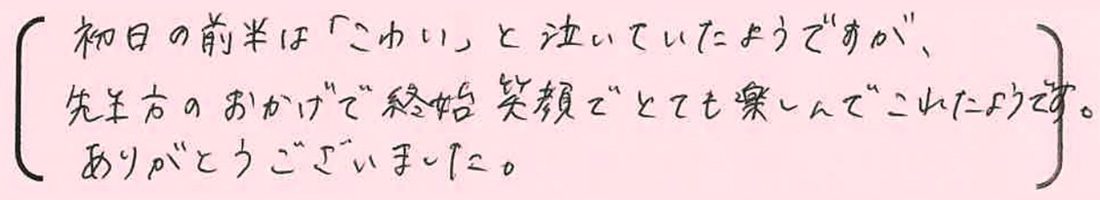 初日の前半は「こわい」と泣いていたようですが、
先生方のおかげで終始笑顔でとても楽しんでこれたようです。
ありがとうございました。